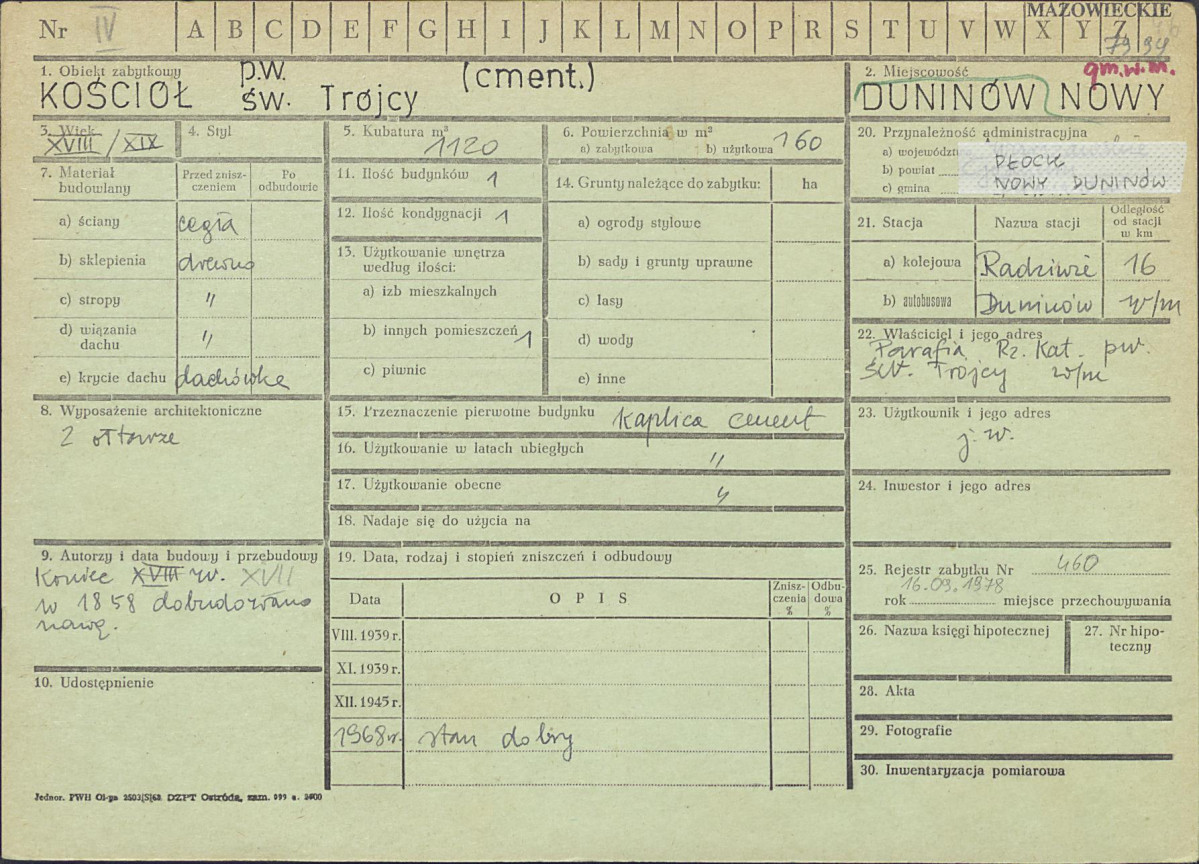 MAZOWIECKIE
Nr IV A B C D E F G H I J K L M N O P R S T U V W X Y Z
7994
gm.w.m.
1. Obiekt zabytkowy
KOŚCIÓŁ p.w. ŚW. Trójcy (cment.)
2. Miejscowość
DUNINÓW NOWY
3. Wiek
XVIII / XIX
4. Styl
5. Kubatura m³
1120
6. Powierzchnia w m²
a) zabytkowa b) użytkowa 160
7. Materiał budowlany
Przed zniszczeniem
Po odbudowie
a) ściany cegła
b) sklepienia drewno
c) stropy "
d) wiązania dachu "
e) krycie dachu dachówka
8. Wyposażenie architektoniczne
2 ołtarze
9. Autorzy i data budowy i przebudowy
Koniec XVIII w. XVII
w 1858 dobudowano
nawę.
10. Udostępnienie
11. Ilość budynków 1
12. Ilość kondygnacji 1
13. Użytkowanie wnętrza
według ilości:
a) izb mieszkalnych
b) innych pomieszczeń 1
c) piwnic
14. Grunty należące do zabytku: ha
a) ogrody stylowe
b) sady i grunty uprawne
c) lasy
d) wody
e) inne
15. Przeznaczenie pierwotne budynku Kaplica cment
16. Użytkowanie w latach ubiegłych "
17. Użytkowanie obecne "
18. Nadaje się do użycia na
19. Data, rodzaj i stopień zniszczeń i odbudowy
Data OPIS Zniszczenia % Odbudowa %
VIII. 1939 r.
XI. 1939 r.
XII. 1945 r.
1968 r. stan dobry
20. Przynależność administracyjna
a) województ
b) powiat PŁOCK
c) gmina NOWY DUNINÓW
21. Stacja Nazwa stacji Odległość od stacji w km
a) kolejowa Radziwie 16
b) autobusowa Duninów w/m
22. Właściciel i jego adres
Parafia Rz. Kat. pw.
Św. Trójcy w/m
23. Użytkownik i jego adres
j. w.
24. Inwestor i jego adres
25. Rejestr zabytku Nr 460
16.09.1978
rok miejsce przechowywania
26. Nazwa księgi hipotecznej
27. Nr hipoteczny
28. Akta
29. Fotografie
30. Inwentaryzacja pomiarowa